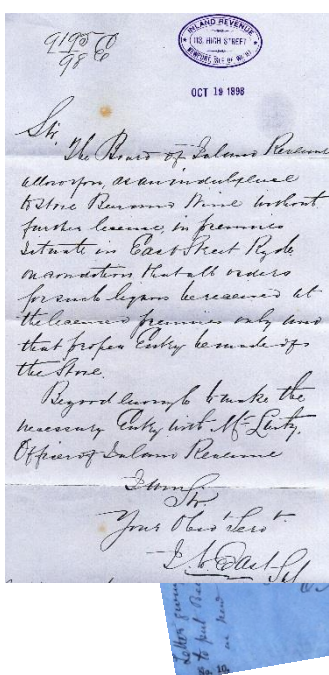 INLAND REVENUE
113, HIGH STREET
NEWPORT, ISLE OF WIGHT
OCT 19 1898
9195
98
Sir,
The Board of Inland Revenue
allow you, as an indulgence
to store Beer and Wine without
further license, in premises
situate in East Street Ryde
on condition that all orders
for such liquors be received at
the licensed premises only and
that proper Entry be made of
the Store.
Be good enough to make the
necessary Entry with Mr
Officer of Inland Revenue
I am
Sir
Your Obedt Servt
East
Letter
to put Beer
in new